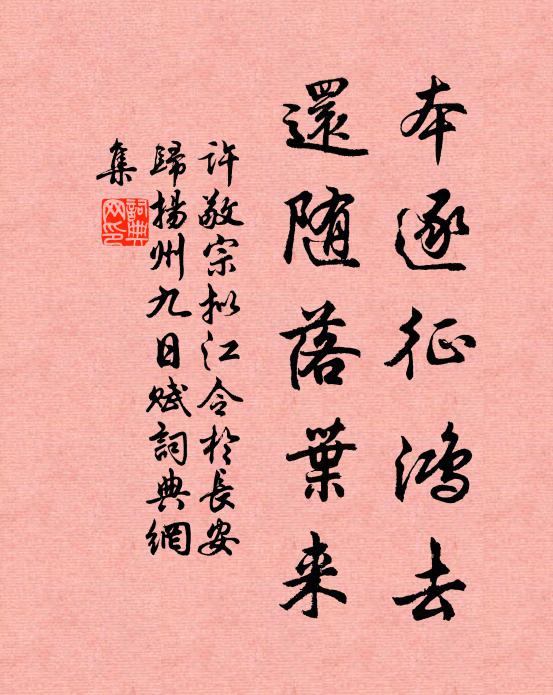 本逐征鸿去
還随落葉来
许敬宗拟江令於長安
歸揚州九日赋詞典網
集
詞典網印